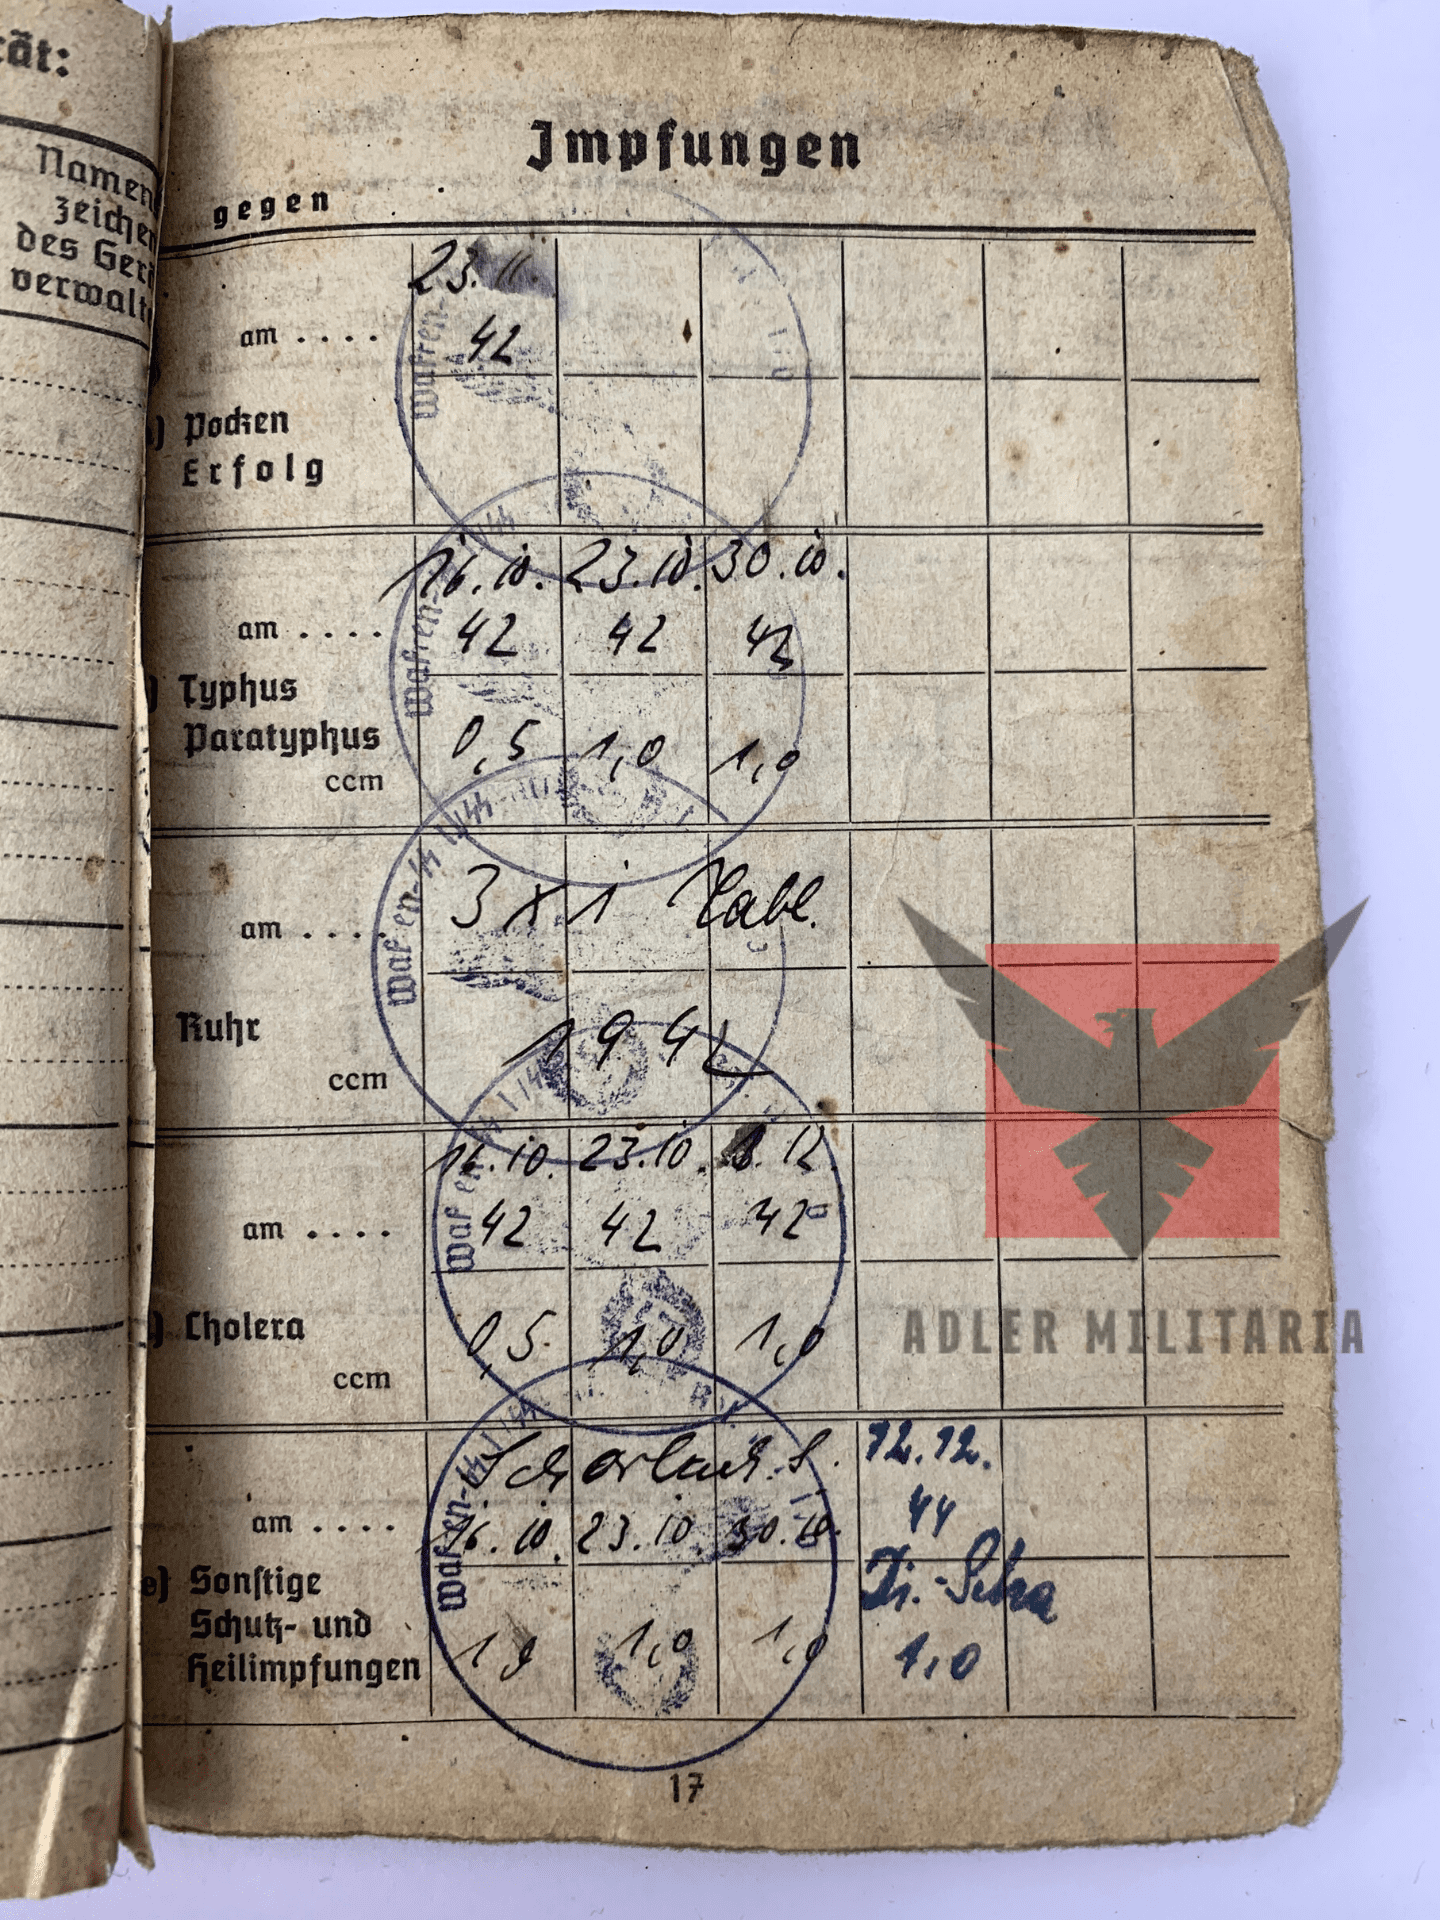 ät:
Namen
zeichen
des Gerä
verwalt
Impfungen
gegen
23. 11.
am . . . . 42
Pocken
Erfolg
16. 10. 23. 10. 30. 10.
am . . . . 42 42 42
Typhus
Paratyphus 0,5 1,0 1,0
ccm
am . . . . 3 x 1 Tabl.
Ruhr 1942
ccm
16. 10. 23. 10. 12.
am . . . . 42 42 42
Cholera 0,5 1,0 1,0
ccm
Scharlach. S. 12. 12.
am . . . . 16. 10. 23. 10. 30. 10. 44
e) Sonstige
Schutz- und
Heilimpfungen 1,0 1,0 1,0
17
Waffen-SS
Waffen-SS
Waffen-SS
Waffen-SS
Waffen-SS
ADLER MILITARIA